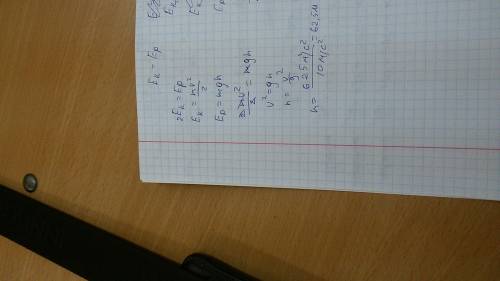 E_k = E_p
2E_k = E_p
E_k = mv²/2
E_p = mgh
2mv²/2 = mgh
v² = gh
h = v²/g
h = 625м/с²/10м/с² = 62,5м